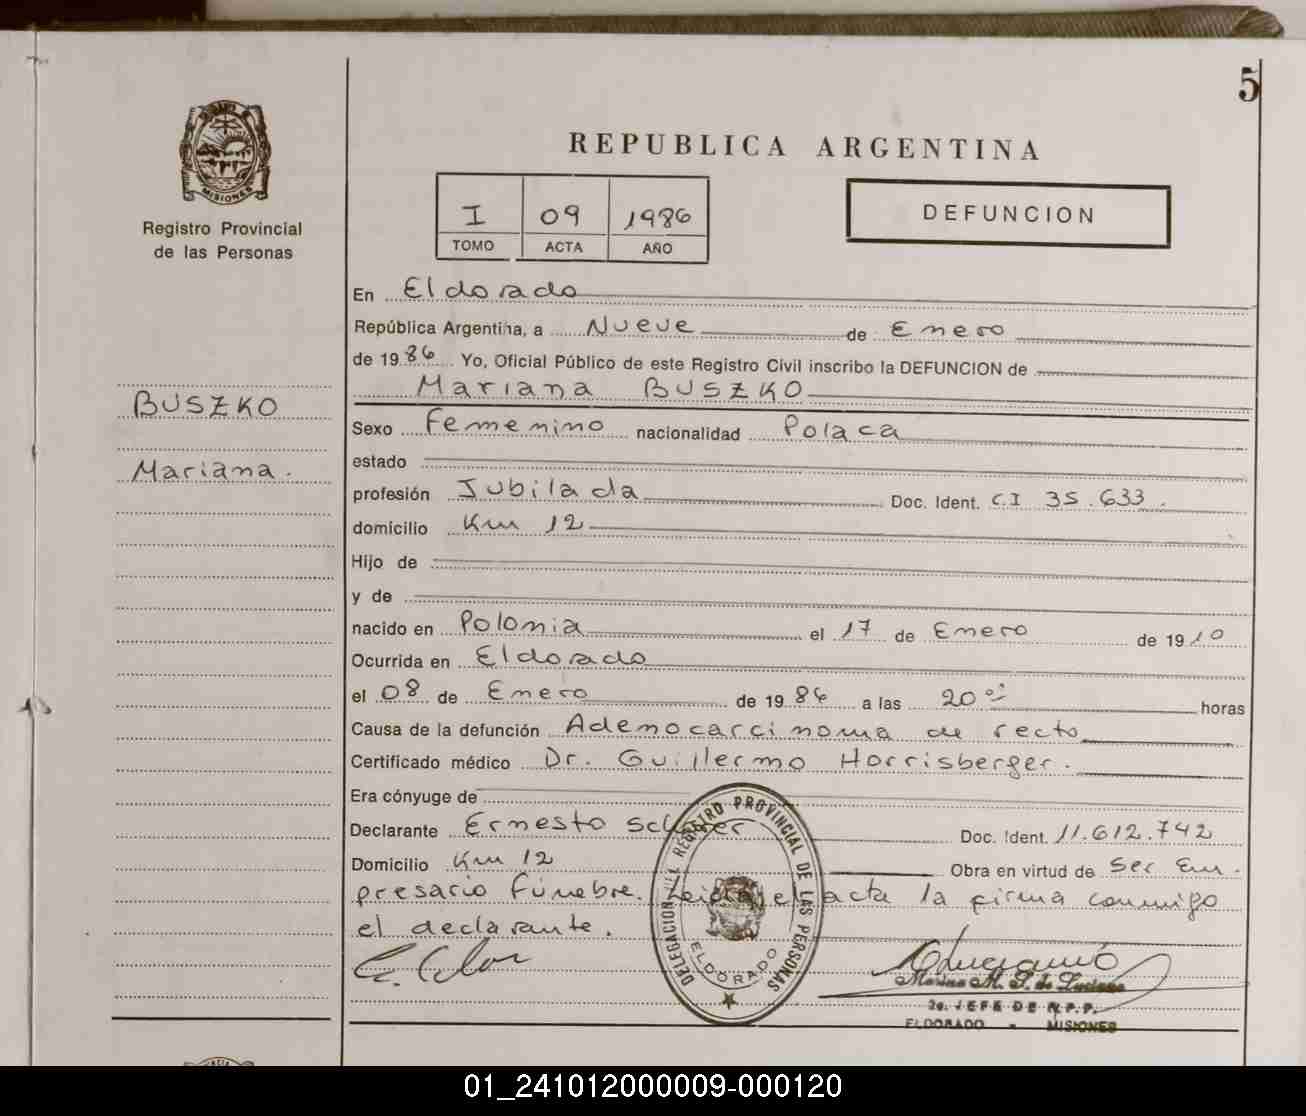 5
MISIONES
Registro Provincial
de las Personas
REPUBLICA ARGENTINA
I 09 1986
TOMO ACTA AÑO
DEFUNCION
BUSZKO
Mariana.
En Eldorado
República Argentina, a Nueve de Enero
de 1986 Yo, Oficial Público de este Registro Civil inscribo la DEFUNCION de
Mariana BUSZKO
Sexo Femenino nacionalidad Polaca
estado
profesión Jubilada Doc. Ident. C.I 35.633.
domicilio Km 12
Hijo de
y de
nacido en Polonia el 17 de Enero de 1910
Ocurrida en Eldorado
el 08 de Enero de 1986 a las 20 horas
Causa de la defunción Ademocarcinoma de recto
Certificado médico Dr. Guillermo Horrisberger.
Era cónyuge de
Declarante Ernesto Doc. Ident. 11.612.742
Domicilio Km 12 Obra en virtud de ser Em-
presario Fúnebre. Leida el acta la firma conmigo
el declarante.
DELEGACION REGISTRO PROVINCIAL DE LAS PERSONAS
ELDORADO
Marina M. S. de Luciano
2a. JEFE DE R.P.P.
ELDORADO - MISIONES
01_241012000009-000120